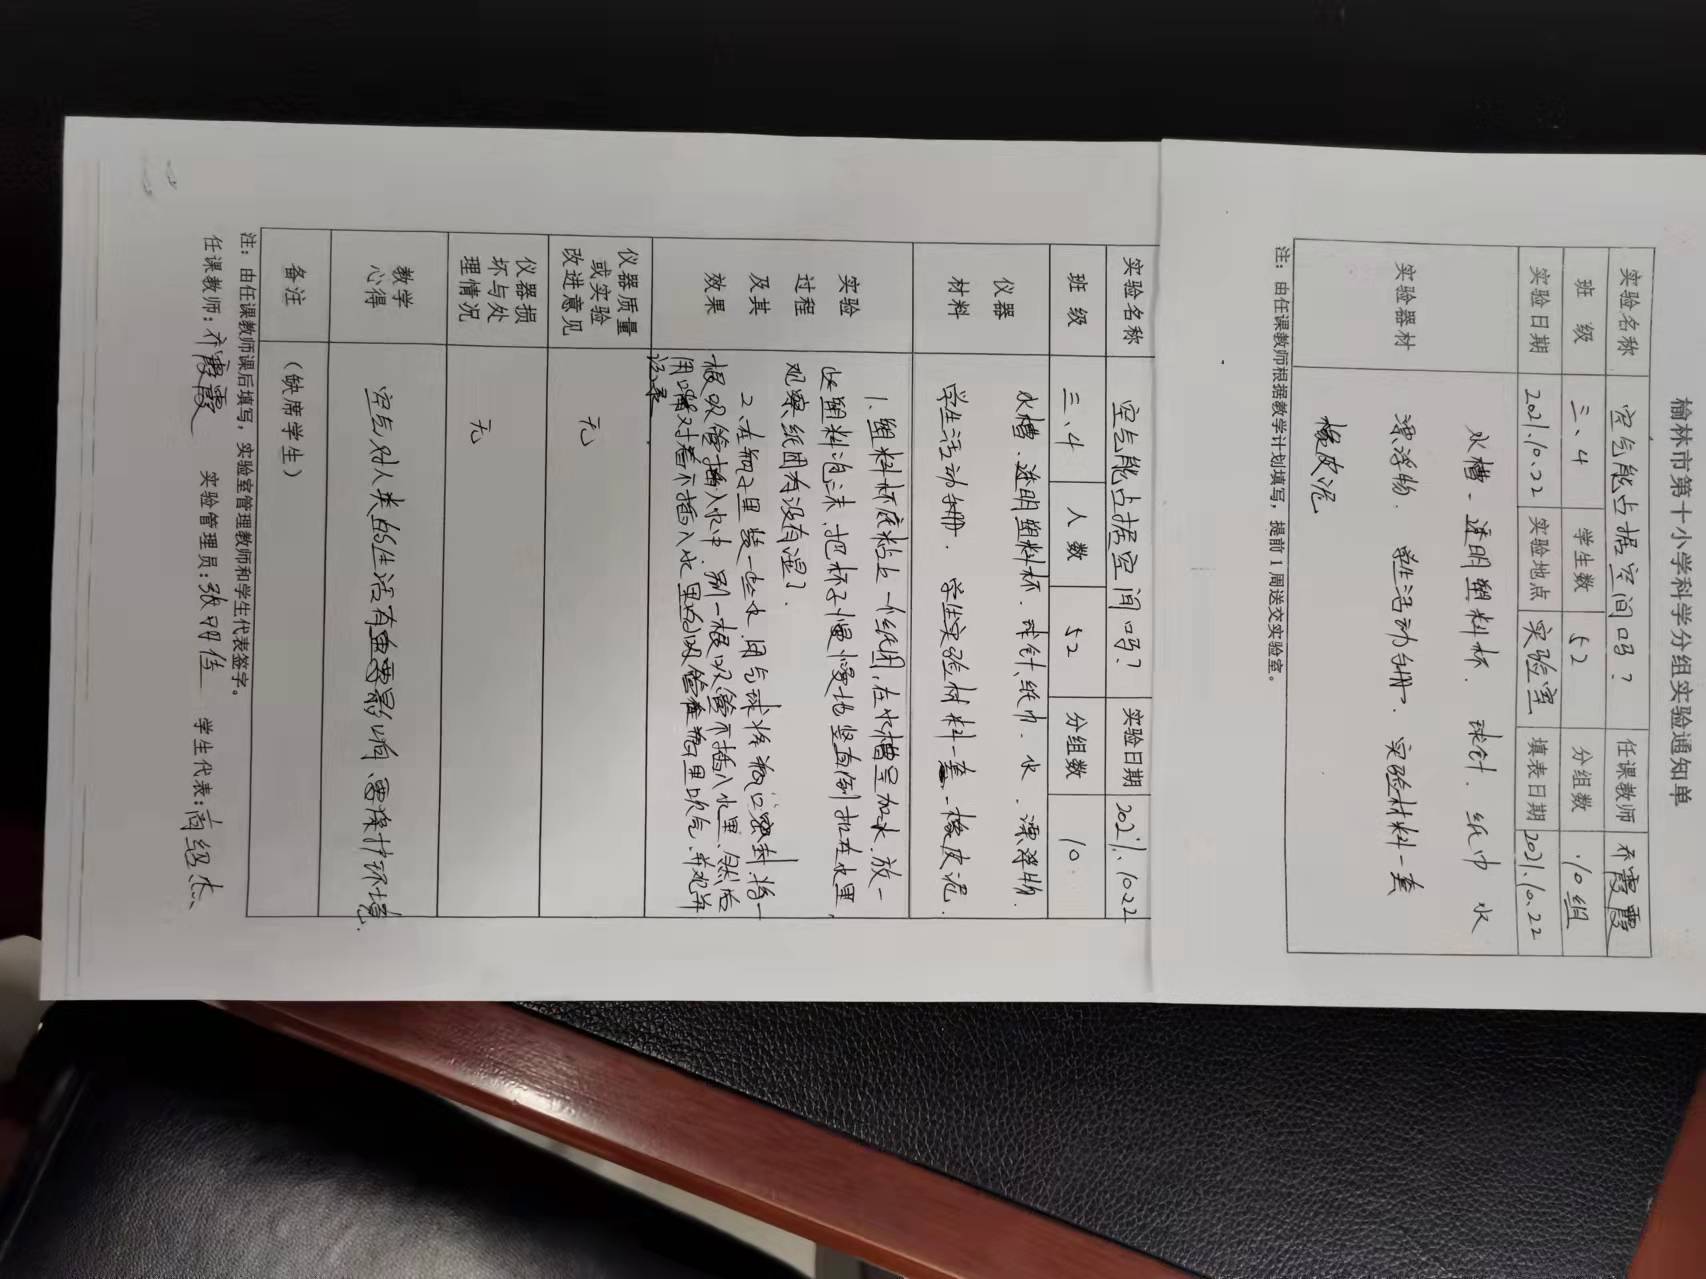 榆林市第十小学科学分组实验通知单
实验名称 空气能占据空间吗? 任课教师 乔霞霞
班 级 三、4 学生数 52 分组数 10组
实验日期 2021.10.22 实验地点 实验室 填表日期 2021.10.22
实验器材
水槽、透明塑料杯. 球针. 纸巾 水
漂浮物. 学生活动手册. 实验材料一套
橡皮泥
注:由任课教师根据教学计划填写,提前1周送交实验室。
实验名称 空气能占据空间吗? 实验日期 2021.10.22
班 级 三、4 人 数 52 分组数 10
仪器
材料
水槽、透明塑料杯. 球针、纸巾. 水. 漂浮物.
学生活动手册. 学生实验材料一套. 橡皮泥.
实验
过程
及其
效果
1.塑料杯底粘上一个纸团,在水槽里加水,放一
些塑料泡沫,把杯子慢慢地竖直倒扣在水里,
观察纸团有没有湿?
2.在瓶子里装一些水,用气球将瓶口密封,将一
根吸管插入水中,另一根吸管不插入水里,然后
用嘴对着不插入水里的吸管往瓶里吹气,并观察
记录
仪器质量
或实验
改进意见
无
仪器损
坏与处
理情况
无
教学
心得
空气对人类的生活有重要影响,要保护环境.
备注 (缺席学生)
注:由任课教师课后填写,实验室管理教师和学生代表签字。
任课教师:乔霞霞 实验管理员:张明佳 学生代表: